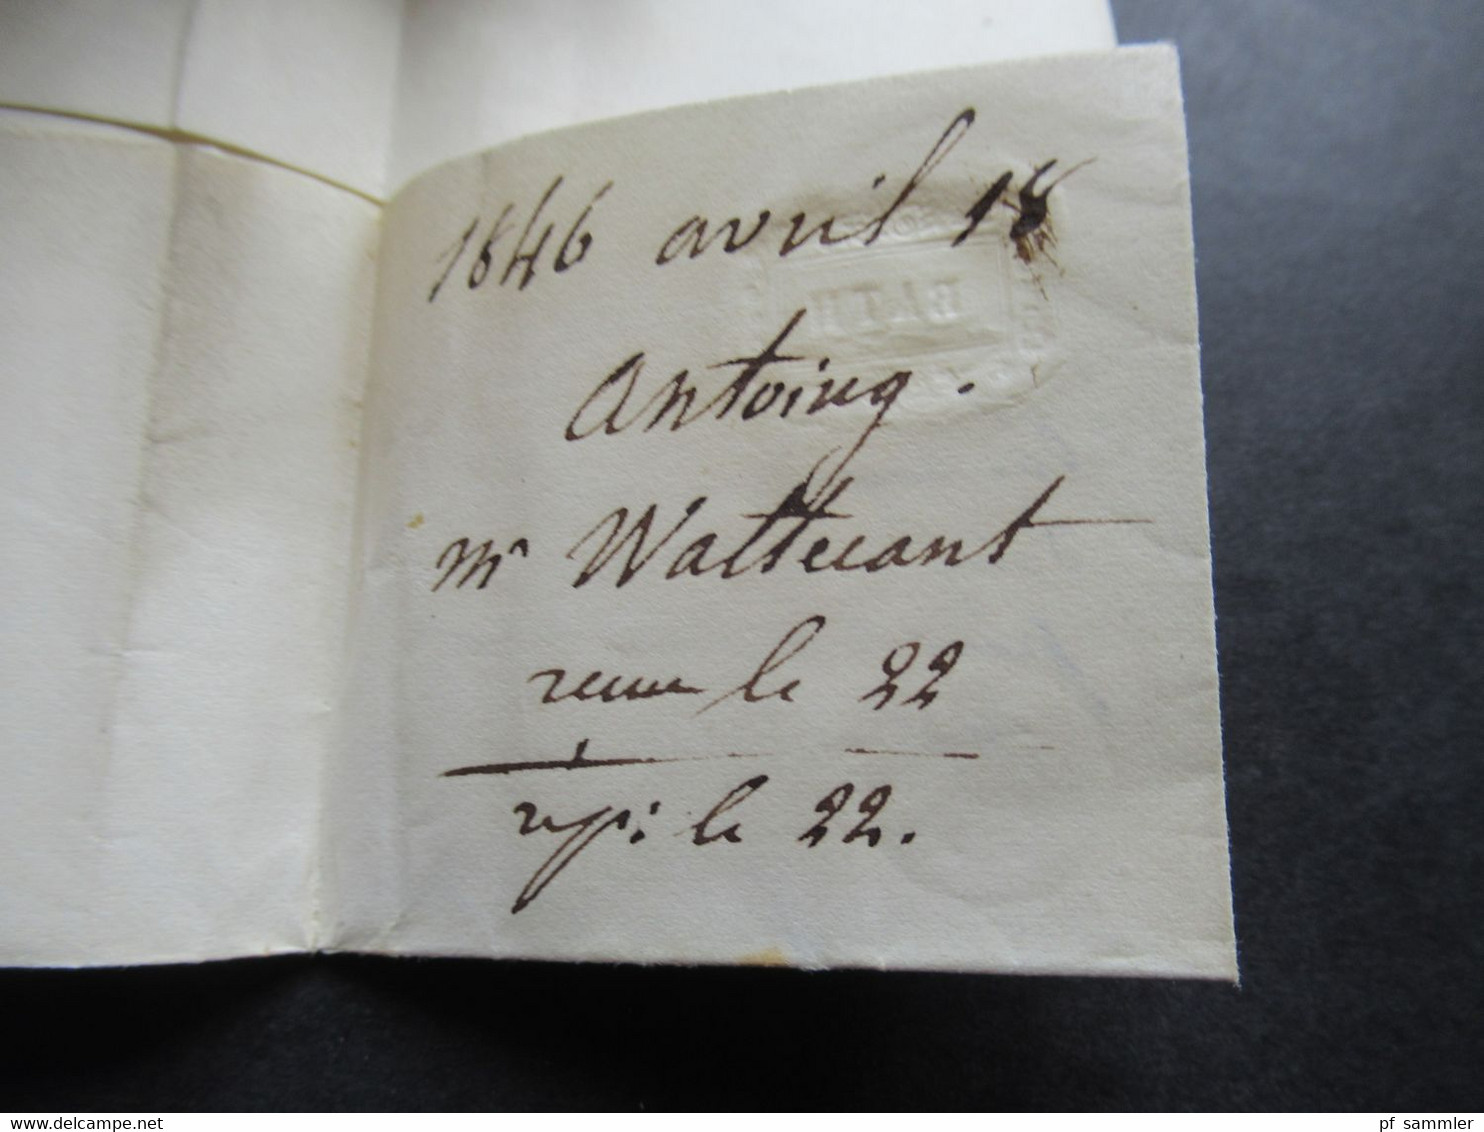 1846 avril 18
BATH
Antoing.
Mr Wattecant
recue le 22
rep: le 22.
www.delcampe.net
pf_sammler